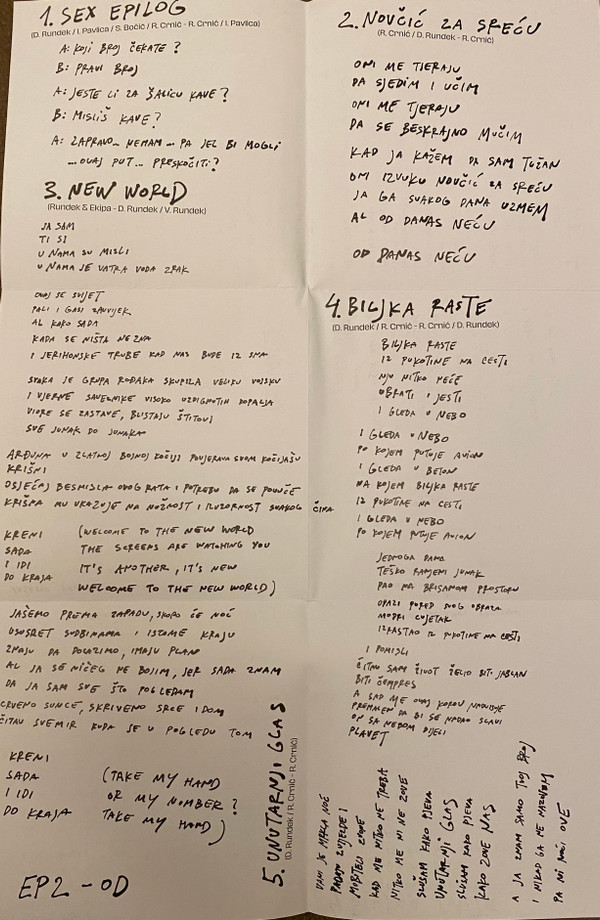 1. SEX EPILOG
(D. Rundek / I. Pavlica / S. Bočić / R. Crnić - R. Crnić / I. Pavlica)
A: KOJI BROJ ČEKATE?
B: PRAVI BROJ
A: JESTE LI ZA ŠALICU KAVE?
B: MISLIŠ KAVE?
A: ZAPRAVO... NEMAM... PA JEL BI MOGLI
...OVAJ PUT... PRESKOČITI?
2. NOVČIĆ ZA SREĆU
(R. Crnić / D. Rundek - R. Crnić)
ONI ME TJERAJU
DA SJEDIM I UČIM
ONI ME TJERAJU
DA SE BESKRAJNO MUČIM
KAD JA KAŽEM DA SAM TUŽAN
ONI IZVUKU NOVČIĆ ZA SREĆU
JA GA SVAKOG DANA UZMEM
AL OD DANAS NEĆU
OD DANAS NEĆU
3. NEW WORLD
(Rundek & Ekipa - D. Rundek / V. Rundek)
JA SAM
TI SI
U NAMA SU MISLI
U NAMA JE VATRA VODA ZRAK
OVAJ SE SVIJET
PALI I GASI ZAUVIJEK
AL KAKO SADA
KADA SE NIŠTA NE ZNA
I JERIHONSKE TRUBE KAD NAS BUDE IZ SNA
SVAKA JE GRUPA ROĐAKA SKUPILA VELIKU VOJSKU
I VJERNE SAVEZNIKE VISOKO UZDIGNUTIH KOPALJA
VIORE SE ZASTAVE, BLISTAJU ŠTITOVI
SVE JUNAK DO JUNAKA
ARĐUNA U ZLATNOJ BOJNOJ KOČIJI POVJERAVA SVOM KOČIJAŠU
KRIŠNI
OSJEĆAJ BESMISLA OVOG RATA I POTREBU DA SE POVUČE
KRIŠNA MU UKAZUJE NA NUŽNOST I ILUZORNOST SVAKOG ČINA
KRENI (WELCOME TO THE NEW WORLD
SADA THE SCREENS ARE WATCHING YOU
I IDI IT'S ANOTHER, IT'S NEW
DO KRAJA WELCOME TO THE NEW WORLD)
JAŠEMO PREMA ZAPADU, SKORO ĆE NOĆ
USUSRET SUDBINAMA I ISTOME KRAJU
ZNAJU DA DOLAZIMO, IMAJU PLAN
AL JA SE NIČEG NE BOJIM, JER SADA ZNAM
DA JA SAM SVE ŠTO POGLEDAM
CRVENO SUNCE, SKRIVENO SRCE I DOM
ČITAV SVEMIR KUDA SE U POGLEDU TOM
KRENI
SADA (TAKE MY HAND
I IDI OR MY NUMBER?
DO KRAJA TAKE MY HAND)
EP2 - OD
4. BILJKA RASTE
(D. Rundek / R. Crnić - R. Crnić / D. Rundek)
BILJKA RASTE
IZ PUKOTINE NA CESTI
NJU NITKO NEĆE
UBRATI I JESTI
I GLEDA U NEBO
I GLEDA U NEBO
PO KOJEM PUTUJE AVION
I GLEDA U BETON
NA KOJEM BILJKA RASTE
IZ PUKOTINE NA CESTI
I GLEDA U NEBO
PO KOJEM PUTUJE AVION
JEDNOGA DANA
TEŠKO RANJENI JUNAK
PAO NA BRISANOM PROSTORU
OPAZI PORED SVOG OBRAZA
MODRI CVJETAK
IZRASTAO IZ PUKOTINE NA CESTI
I POMISLI
ČITAV SAM ŽIVOT ŽELIO BITI JABLAN
BITI ČEMPRES
A SAD ME OVAJ KOROV NADVISUJE
PREMALEN DA BI SE NADAO SLAVI
ON SA NEBOM DIJELI
PLAVET
5. UNUTARNJI GLAS
(D. Rundek / R. Crnić - R. Crnić)
VANI JE MRKLA NOĆ
PADAJU ZVIJEZDE I
MOBITELI ZVONE
KAD ME NITKO NE TREBA
NITKO ME NI NE ZOVE
SLUŠAM KAKO PJEVA
UNUTARNJI GLAS
SLUŠAM KAKO PJEVA
KAKO ZOVE NAS
A JA ZNAM SAMO TVOJ BROJ
I NIKAD GA NE NAZIVAM
PA NI NOĆI OVE